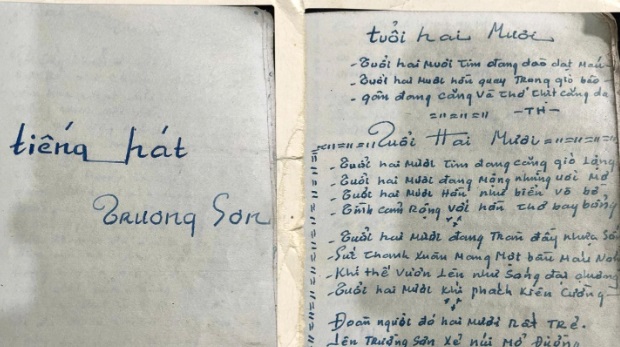 tiếng hát
Trương Sơn
tuổi hai Mươi
- Tuổi hai Mươi tim đang dào dạt Máu
- Tuổi hai Mươi hồn quay Trong gió bão
- gân đang căng và thớ thịt căng da
=11=11=11 -TH-
Tuổi Hai Mươi
- Tuổi hai Mươi tim đang căng gió Lộng
- Tuổi hai Mươi đang Mộng những ước Mơ
- Tuổi hai Mươi Hồn như biển vỗ bờ
- Tình cảm Rộng với hồn thơ bay bổng
- Tuổi hai Mươi đang Tràn đầy nhựa Sống
- Sức thanh Xuân Mang Một bầu Máu
- Khí thế Vươn Lên như Sóng đại dương
- Tuổi hai Mươi Khí phách Kiên Cường
Đoàn người đó hai Mươi Rất TRẺ.
Lên Trường Sơn Xẻ núi Mở Đường